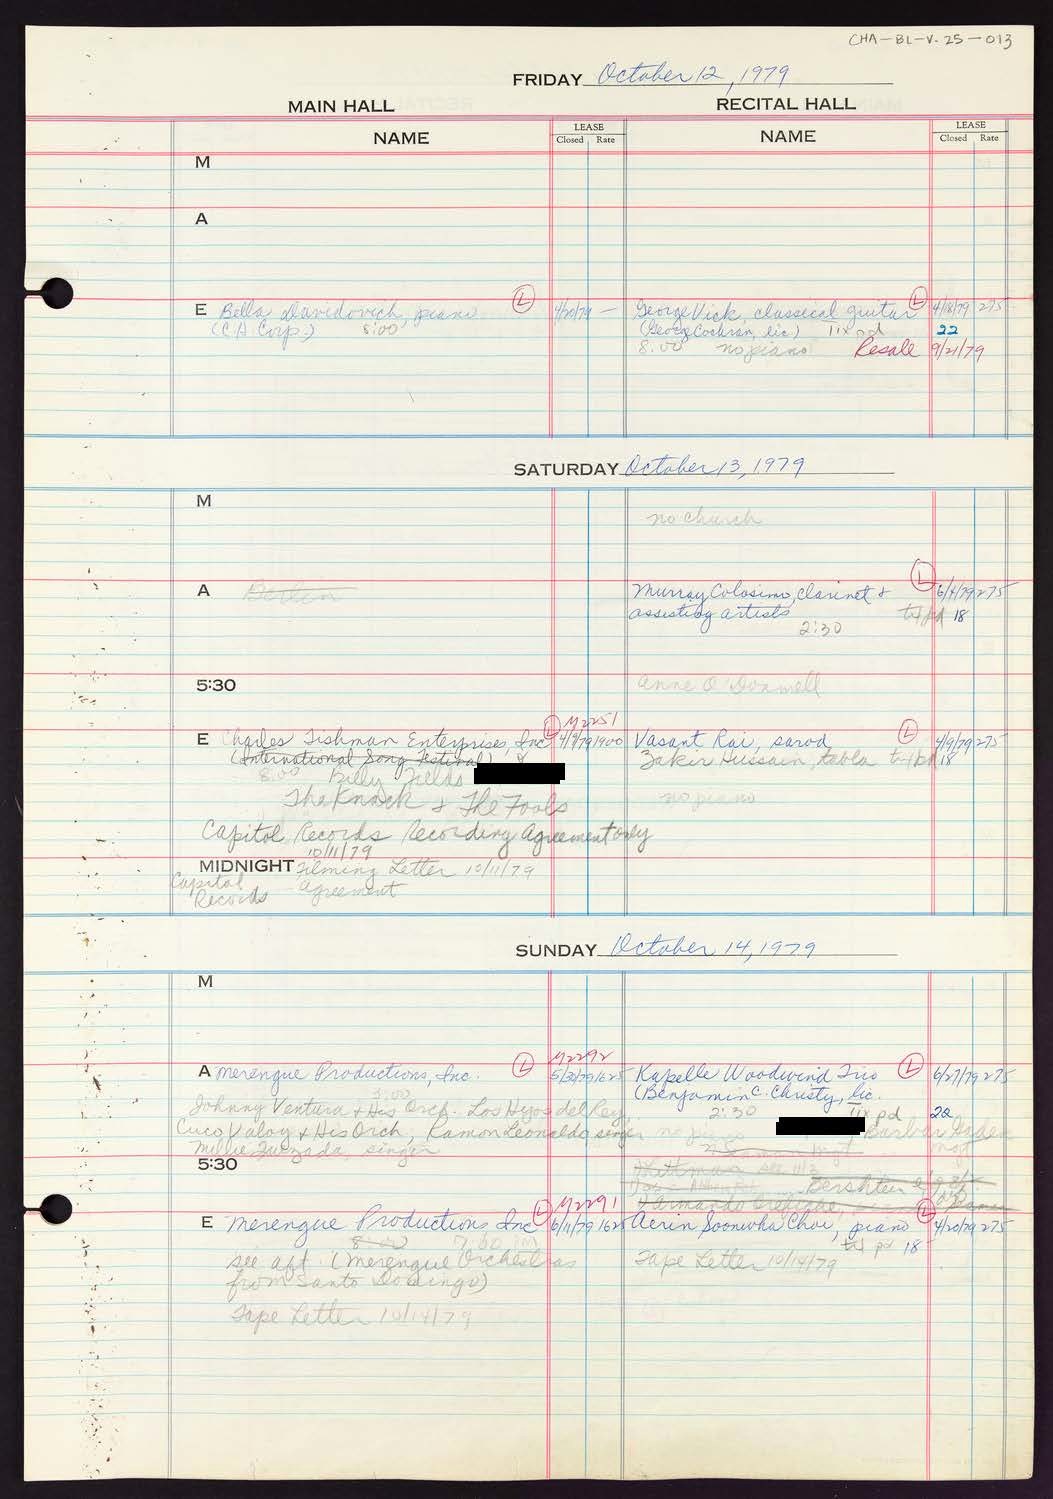 CHA-BL-V.25-013
FRIDAY October 12, 1979
MAIN HALL
RECITAL HALL
NAME
LEASE
Closed Rate
NAME
LEASE
Closed Rate
M
A
E Bella Davidovich, piano Ⓛ 4/20/79 —
(C.A. Corp.) 8:00
George Vick, classical guitar Ⓛ 4/18/79 275
(George Cochran, lic) tix pd 22
8:00 no piano Resale 9/21/79
SATURDAY October 13, 1979
M
no church
A Berlin
Murray Colosimo, clarinet & Ⓛ 6/4/79 275
assisting artists 18
2:30
5:30
Anne O'Donnell
M2251
E Charles Fishman Enterprises, Inc Ⓛ 4/9/79 1900
(International Song Festival) &
8:00 Billy Fields
The Knack & The Fools
Capitol Records Recording Agreement only
10/11/79
MIDNIGHT Filming Letter 10/11/79
Capitol Agreement
Records
Vasant Rai, sarod Ⓛ 4/9/79 275
Zakir Hussain, tabla 18
no piano
SUNDAY October 14, 1979
M
M2292
A Merengue Productions, Inc. Ⓛ 5/31/79 1625
Johnny Ventura & His Orch. Los Hijos del Rey
Cuco Valoy & His Orch, Ramon Leonaldo singer
Millie Quezada, singer
Kapelle Woodwind Trio Ⓛ 6/27/79 275
(Benjamin C. Christy, lic.
2:30 tix pd 22
no piano
mgt
5:30
M2291
E Merengue Productions Inc Ⓛ 6/11/79 1625
8:00 7:00 PM
see aft. (Merengue Orchestras
from Santo Domingo)
Tape Letter 10/14/79
Aerin Soonwha Choi, piano Ⓛ 4/20/79 275
pd 18
Tape Letter 10/14/79